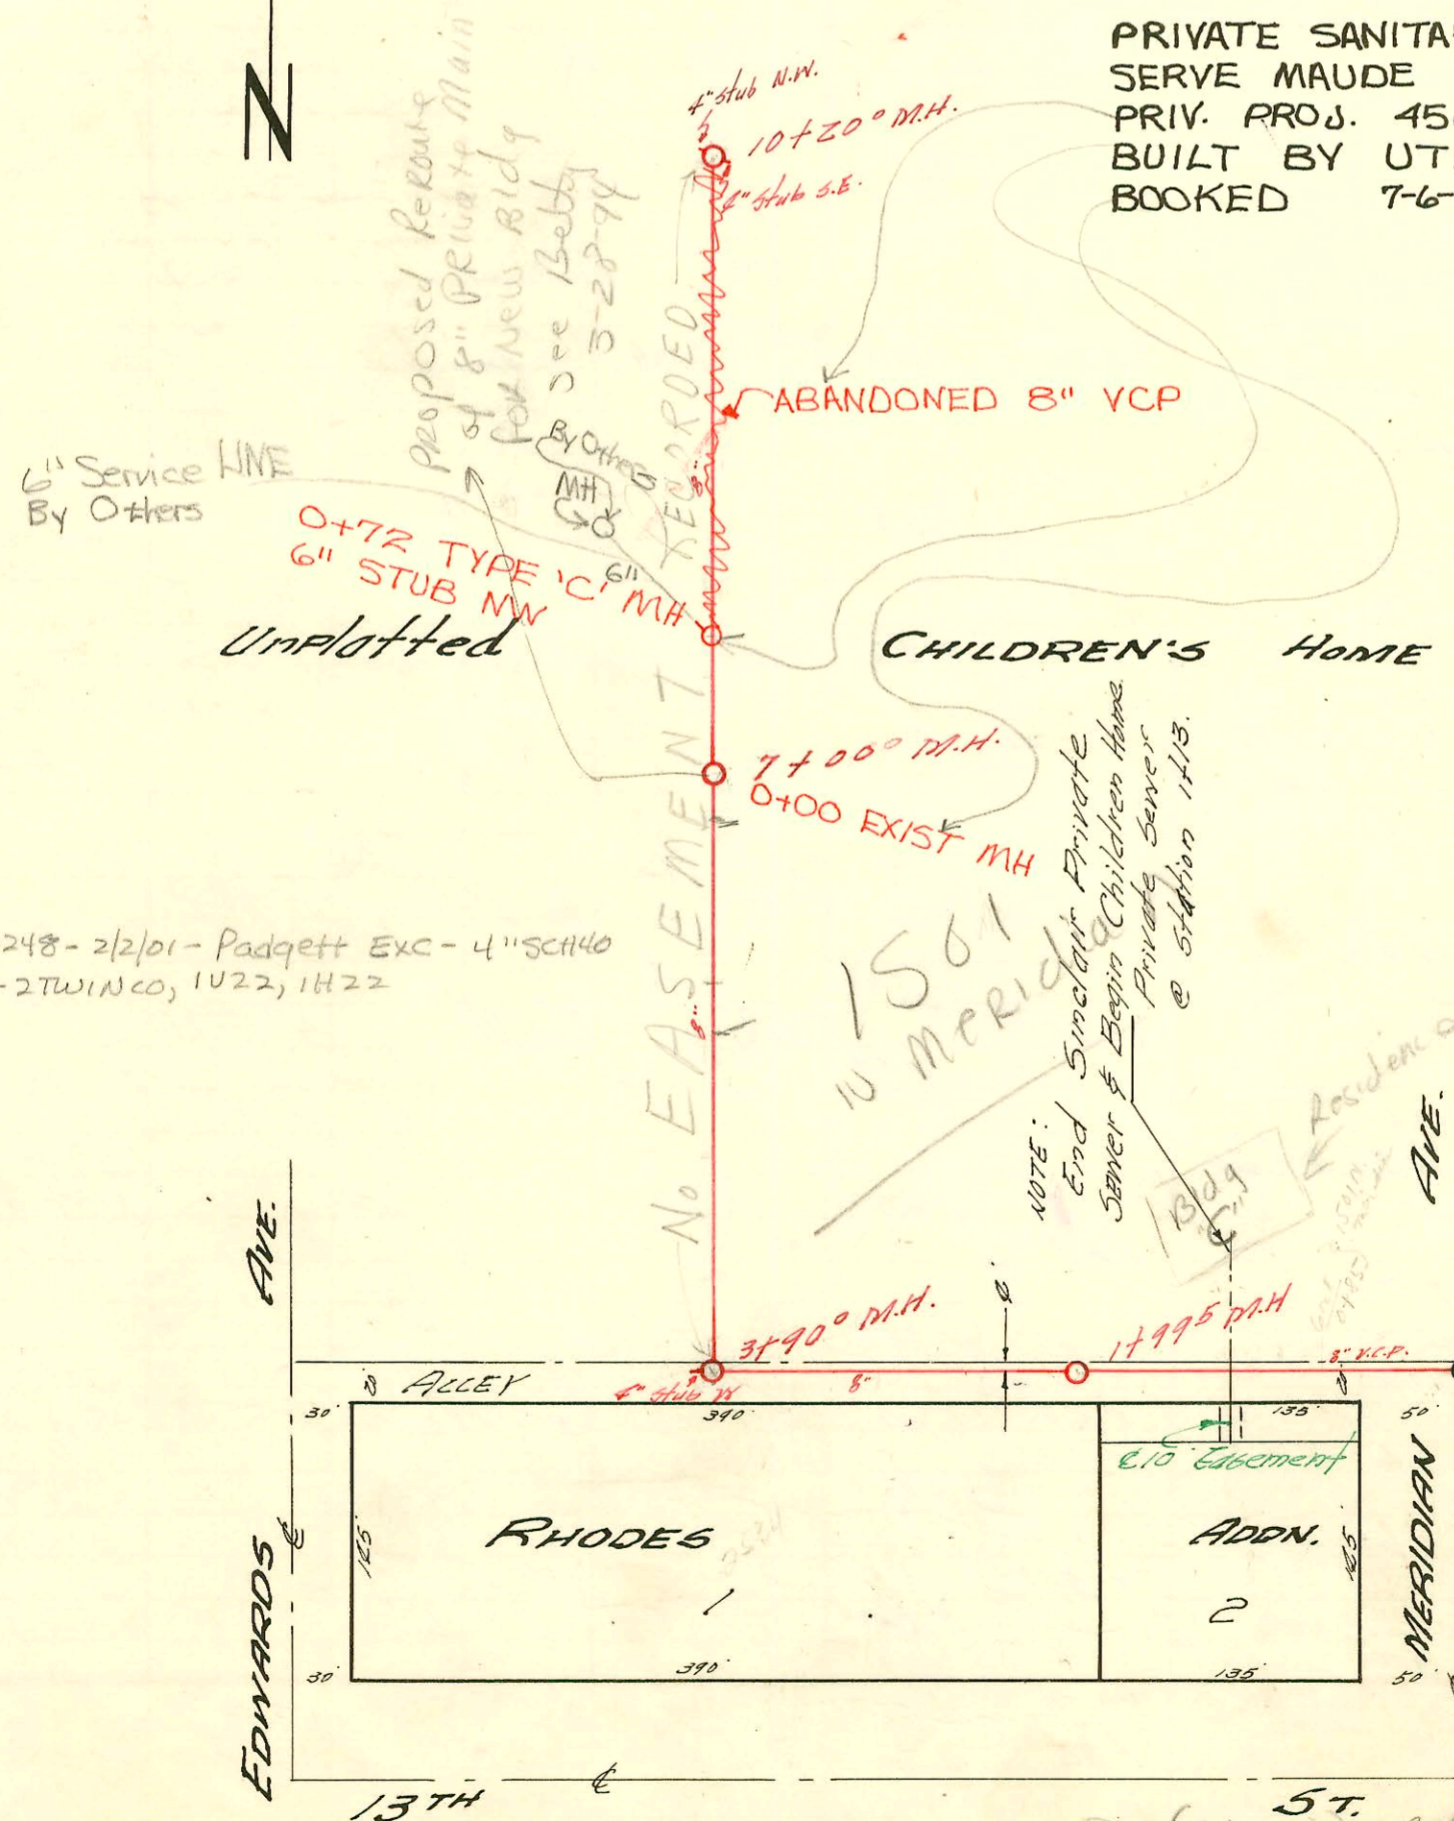 N
PRIVATE SANITA
SERVE MAUDE
PRIV. PROJ. 45
BUILT BY UT
BOOKED 7-6-
4" Stub N.W.
10+20° M.H.
4" Stub S.E.
Proposed Reroute
of 8" Private Main
for New Bldg
See Betty
3-28-94
ABANDONED 8" VCP
8"
6" Service LINE
By Others
By Others
MH
6"
0+72 TYPE 'C' MH
6" STUB NW
Unplatted
CHILDREN'S HOME
7+00° M.H.
0+00 EXIST MH
No EASEMENT RECORDED
248- 2/2/01- Padgett EXC- 4" SCH40
-2TWINCO, 1U22, 1H22
8"
1501
N Meridian
NOTE:
End Sinclair Private
Sewer & Begin Children Home
Private Sewer
@ Station 1+13.
Residence
Bldg
"C"
AVE.
AVE.
3+90° M.H.
1+99⁵ M.H
8" V.C.P.
20'
ALLEY
4" Stub W
8"
20'
30'
390'
135'
50'
℄ 10' Easement
RHODES
ADDN.
125'
125'
1
2
30'
390'
135'
50'
EDWARDS
℄
MERIDIAN
13TH
℄
ST.